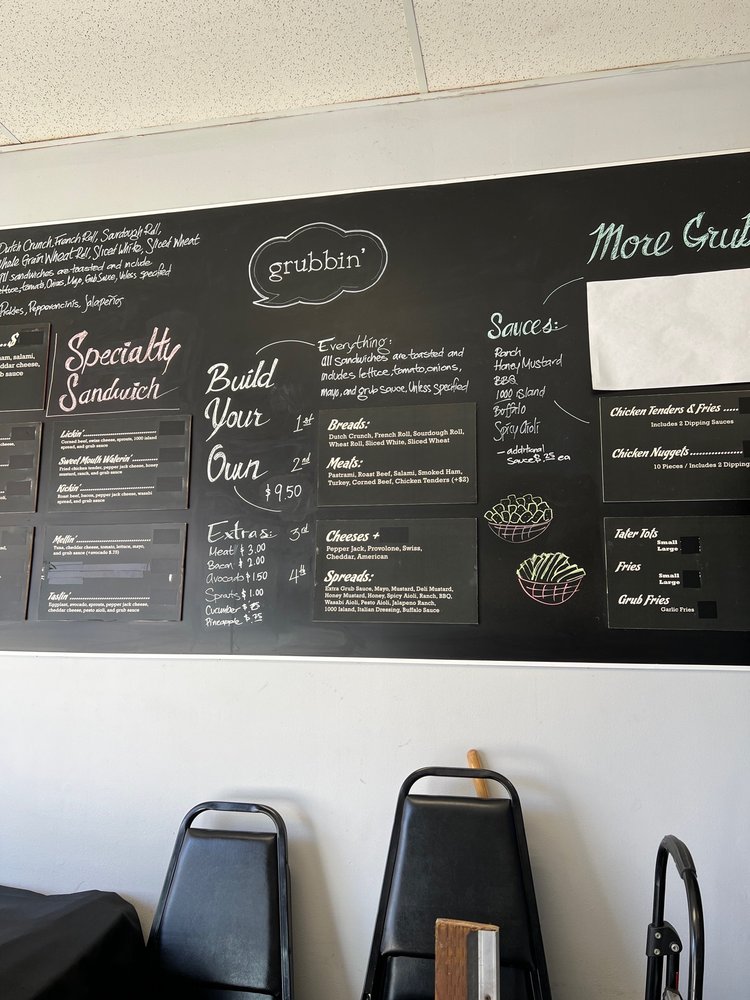 Dutch Crunch, French Roll, Sourdough Roll,
Whole Grain Wheat Roll, Sliced White, Sliced Wheat
All sandwiches are toasted and include
lettuce, tomato, Onions, Mayo, Grub Sauce, Unless specified
Pickles, Pepperoncinis, Jalapeños
..$
ham, salami,
cheddar cheese,
grub sauce
Specialty
Sandwich
Lickin'
Corned beef, swiss cheese, sprouts, 1000 island
spread, and grub sauce
Sweet Mouth Waterin'
Fried chicken tender, pepper jack cheese, honey
mustard, ranch, and grub sauce
Kickin'
Roast beef, bacon, pepper jack cheese, wasabi
spread, and grub sauce
Meltin'
Tuna, cheddar cheese, tomato, lettuce, mayo,
and grub sauce (+avocado $.75)
Tastin'
Eggplant, avocado, sprouts, pepper jack cheese,
cheddar cheese, pesto aioli, and grub sauce
grubbin'
Build
Your
Own
$9.50
1st
2nd
3rd
4th
Extras:
Meat $3.00
Bacon $2.00
Avocado $1.50
Sprouts $1.00
Cucumber $.75
Pineapple $.75
Everything:
All Sandwiches are toasted and
includes lettuce, tomato, onions,
mayo, and grub sauce, Unless Specified
Breads:
Dutch Crunch, French Roll, Sourdough Roll,
Wheat Roll, Sliced White, Sliced Wheat
Meats:
Pastrami, Roast Beef, Salami, Smoked Ham,
Turkey, Corned Beef, Chicken Tenders (+$2)
Cheeses +
Pepper Jack, Provolone, Swiss,
Cheddar, American
Spreads:
Extra Grub Sauce, Mayo, Mustard, Deli Mustard,
Honey Mustard, Honey, Spicy Aioli, Ranch, BBQ,
Wasabi Aioli, Pesto Aioli, Jalapeno Ranch,
1000 Island, Italian Dressing, Buffalo Sauce
Sauces:
Ranch
Honey Mustard
BBQ
1000 Island
Buffalo
Spicy Aioli
- additional
Sauce $.75 ea
More Grub
Chicken Tenders & Fries
Includes 2 Dipping Sauces
Chicken Nuggets
10 Pieces / Includes 2 Dipping
Tater Tots
Small
Large
Fries
Small
Large
Grub Fries
Garlic Fries